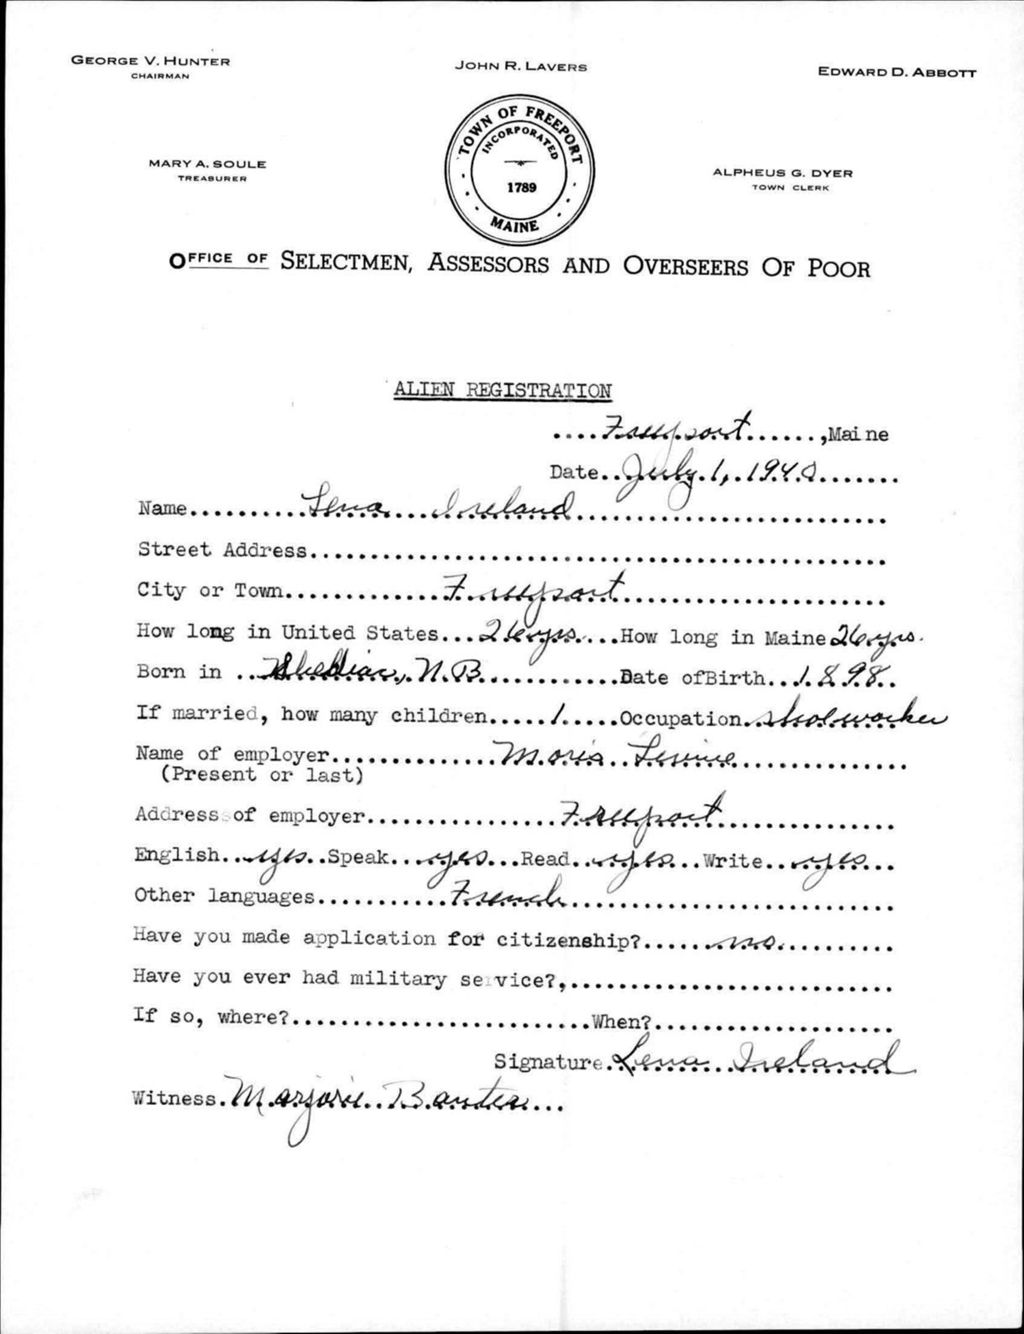 GEORGE V. HUNTER
CHAIRMAN
JOHN R. LAVERS
EDWARD D. ABBOTT
MARY A. SOULE
TREASURER
TOWN OF FREEPORT
INCORPORATED
1789
MAINE
ALPHEUS G. DYER
TOWN CLERK
OFFICE OF SELECTMEN, ASSESSORS AND OVERSEERS OF POOR
ALIEN REGISTRATION
....Freeport......,Maine
Date..July 1, 1940.......
Name..........Lena...Ireland..........................
Street Address..................................................
City or Town.............Freeport......................
How long in United States...26 yrs....How long in Maine 26 yrs.
Born in ..Shediac, N.B............Date ofBirth..1898..
If married, how many children.....1.....Occupation..
Name of employer..............Moris..Levine..............
(Present or last)
Address of employer................Freeport..............
English..yes..Speak...yes...Read..yes...Write...yes...
Other languages...........French..........................
Have you made application for citizenship?......no..........
Have you ever had military service?,...........................
If so, where?.........................When?....................
Signature.Lena..Ireland
Witness.Marjorie...